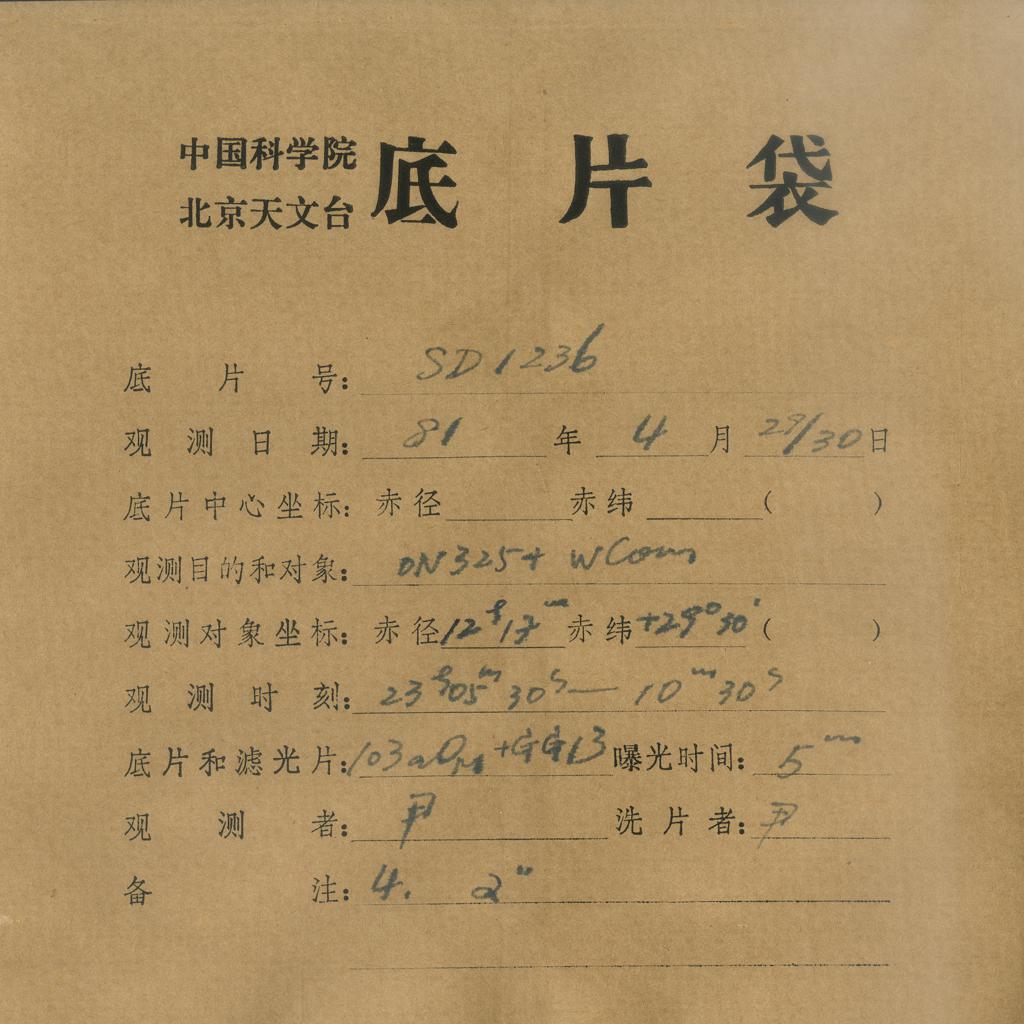 中国科学院
北京天文台
底片袋
底片号: SD1236
观测日期: 81年4月29/30日
底片中心坐标: 赤径 赤纬 ( )
观测目的和对象: ON325+ WCom
观测对象坐标: 赤径12ʰ17ᵐ 赤纬+29°30′ ( )
观测时刻: 23ʰ05ᵐ30ˢ—10ᵐ30ˢ
底片和滤光片: 103aO +GG13 曝光时间: 5ᵐ
观测者: 尹 洗片者: 尹
备注: 4. 2″